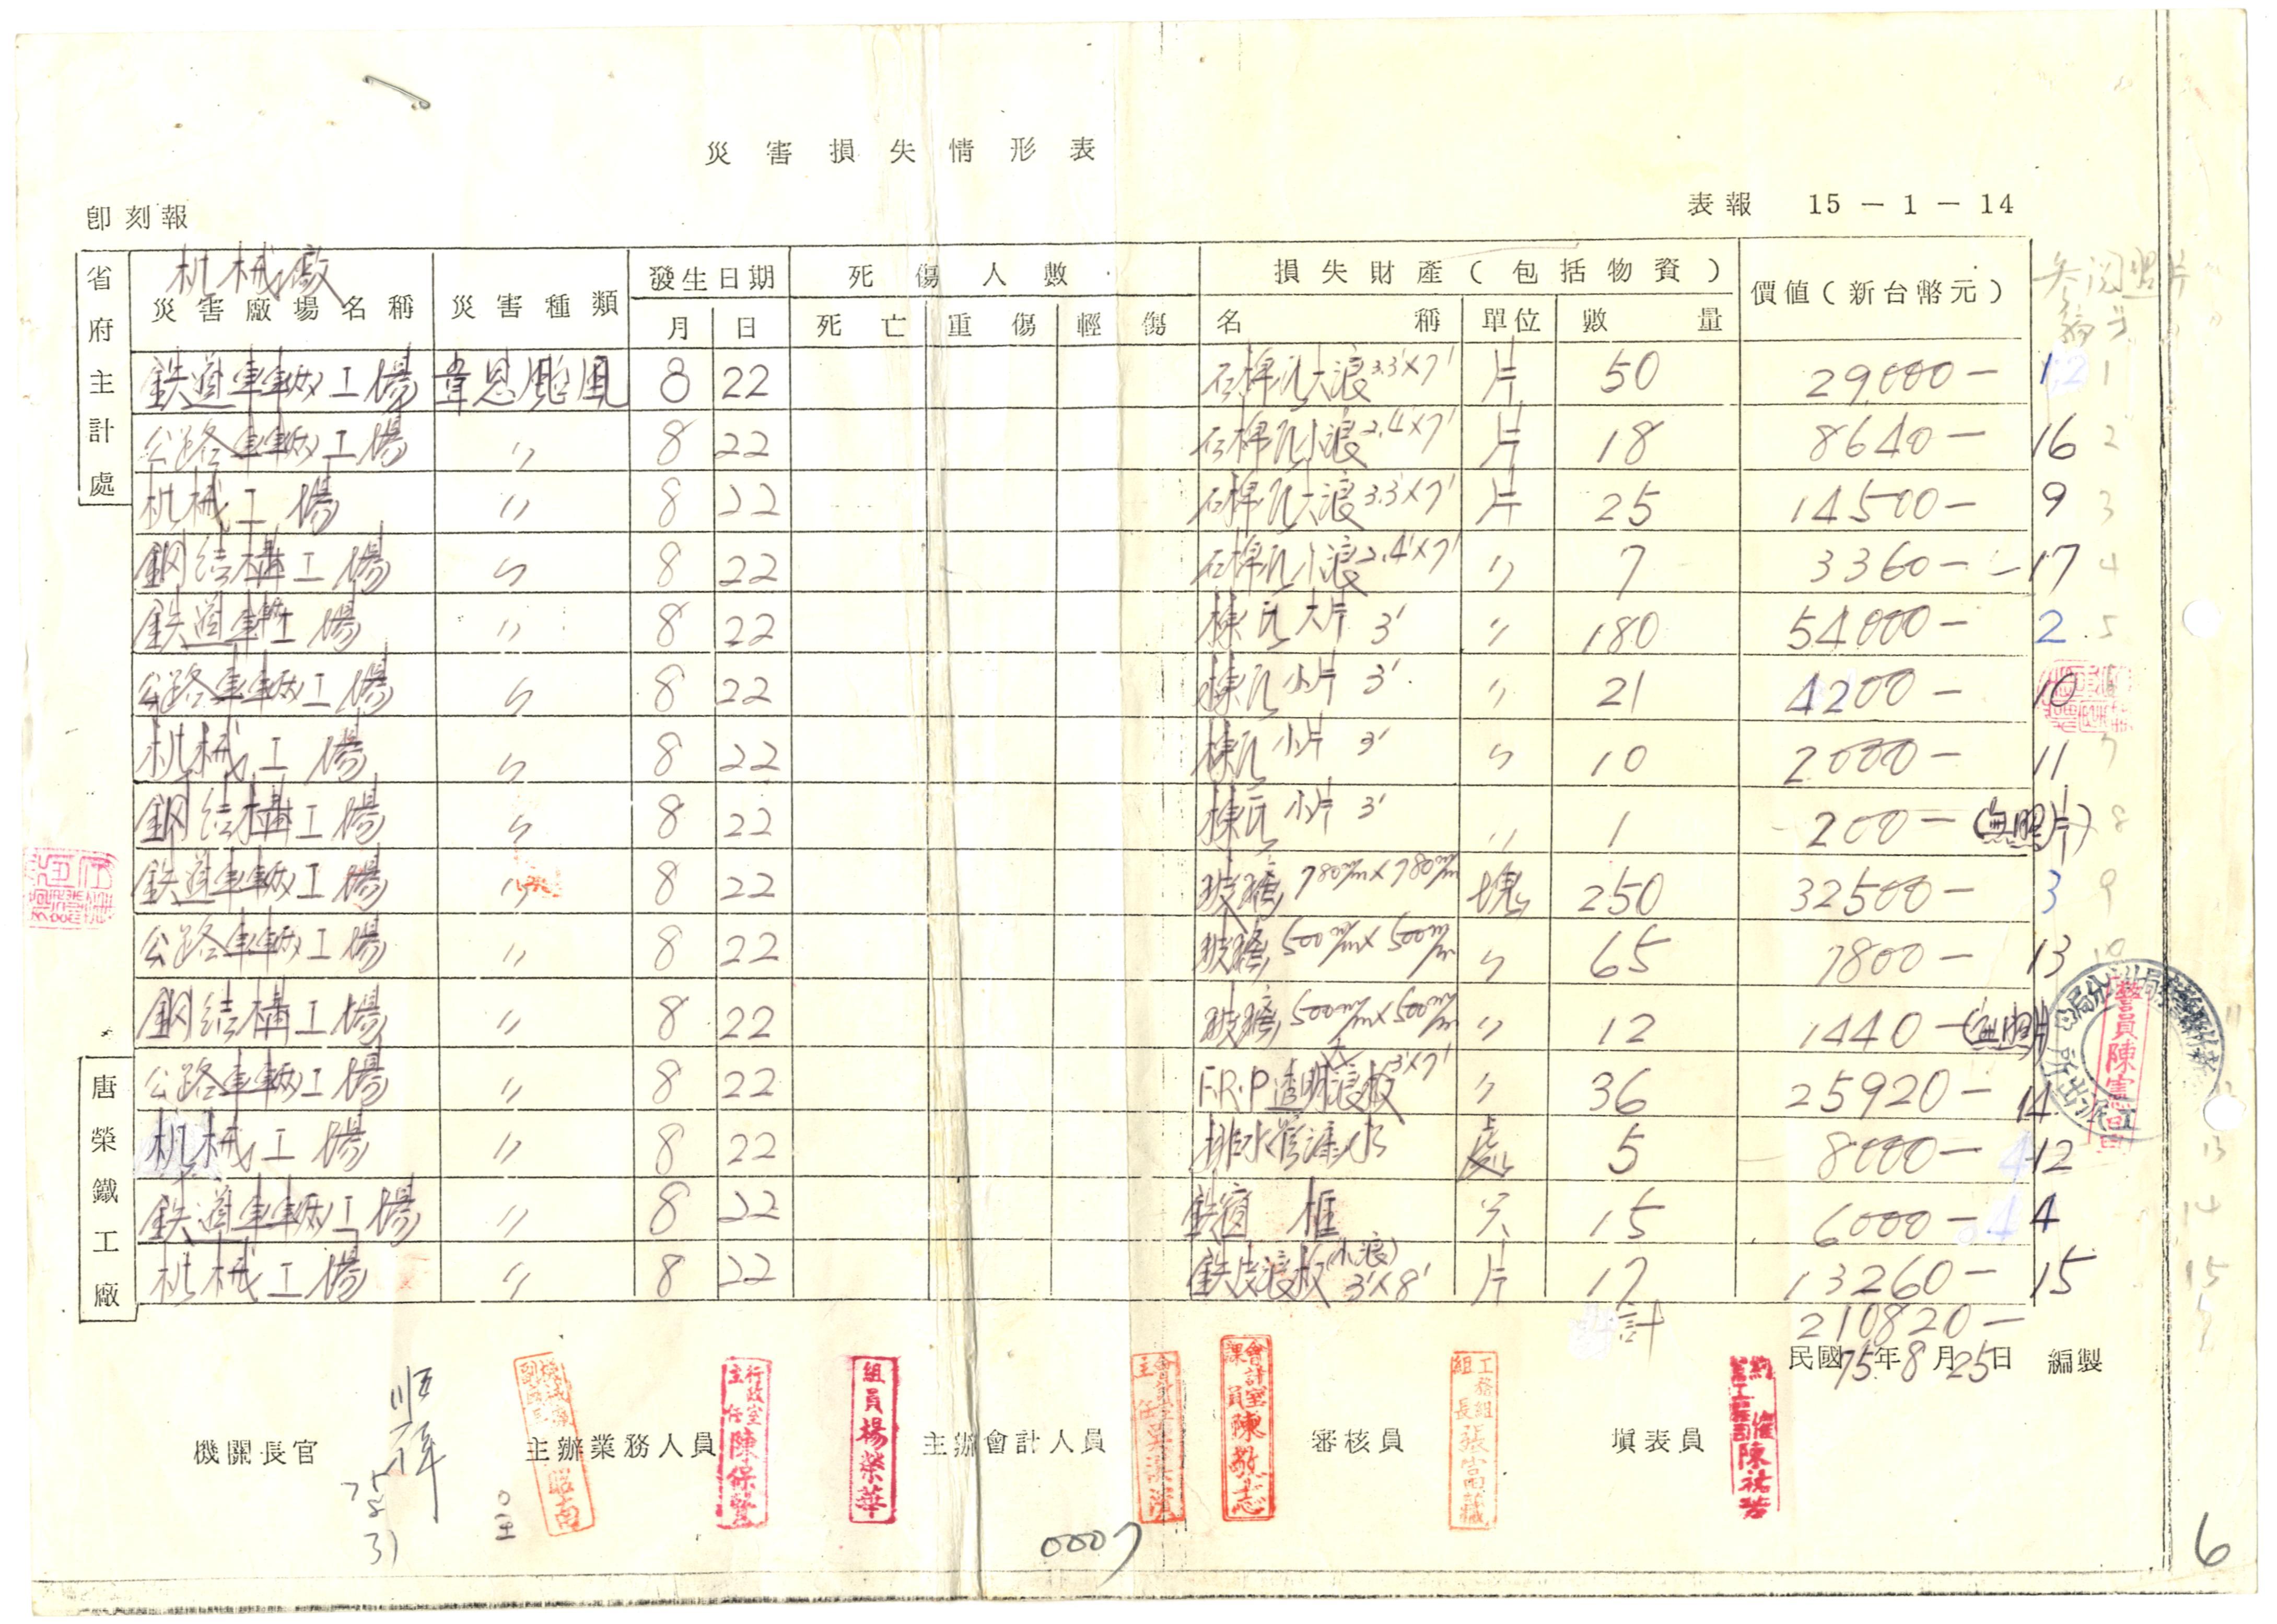 災害損失情形表
即刻報
表報 15－1－14
省府主計處
机械廠
災害廠場名稱 災害種類 發生日期 月 日 死傷人數 死亡 重傷 輕傷 損失財產（包括物資） 名稱 單位 數量 價值（新台幣元）
参閲照片
鉄道車輌工場 韋恩颱風 8 22 石棉瓦大浪3.3'×7' 片 50 29,000－ 1 1
公路車輌工場 〃 8 22 石棉瓦小浪2.4'×7' 片 18 8640－ 16 2
机械工場 〃 8 22 石棉瓦大浪3.3'×7' 片 25 14500－ 9 3
鋼结構工場 〃 8 22 石棉瓦小浪2.4'×7' 〃 7 3360－ 17 4
鉄道車輌工場 〃 8 22 棟瓦大片 3' 〃 180 54000－ 2 5
公路車輌工場 〃 8 22 棟瓦小片 3' 〃 21 4200－ 10
机械工場 〃 8 22 棟瓦小片 3' 〃 10 2000－ 11 7
鋼结構工場 〃 8 22 棟瓦小片 3' 〃 1 200－ (無照片) 8
鉄道車輌工場 〃 8 22 玻璃 780m/m×780m/m 塊 250 32500－ 3 9
公路車輌工場 〃 8 22 玻璃 500m/m×500m/m 〃 65 7800－ 13 10
鋼结構工場 〃 8 22 玻璃 500m/m×500m/m 〃 12 1440－ (無照片) 11
公路車輌工場 〃 8 22 F.R.P透明浪板3'×7' 〃 36 25920－ 14
机械工場 〃 8 22 排水管漏水 處 5 8000－ 12 13
鉄道車輌工場 〃 8 22 鉄窗框 只 15 6000－ 4 14
机械工場 〃 8 22 鉄皮浪板(小浪) 3'×8' 片 17 13260－ 15 15
唐榮鐵工廠
計 210820－
民國75年8月25日 編製
警員陳憲昌
機關長官 主辦業務人員 主辦會計人員 審核員 填表員
75
8
31
昭南
行政室主任陳保賢
組員楊榮華
會計室課員陳敬志
工務組組長張富藏
陳祐芳
0007
6